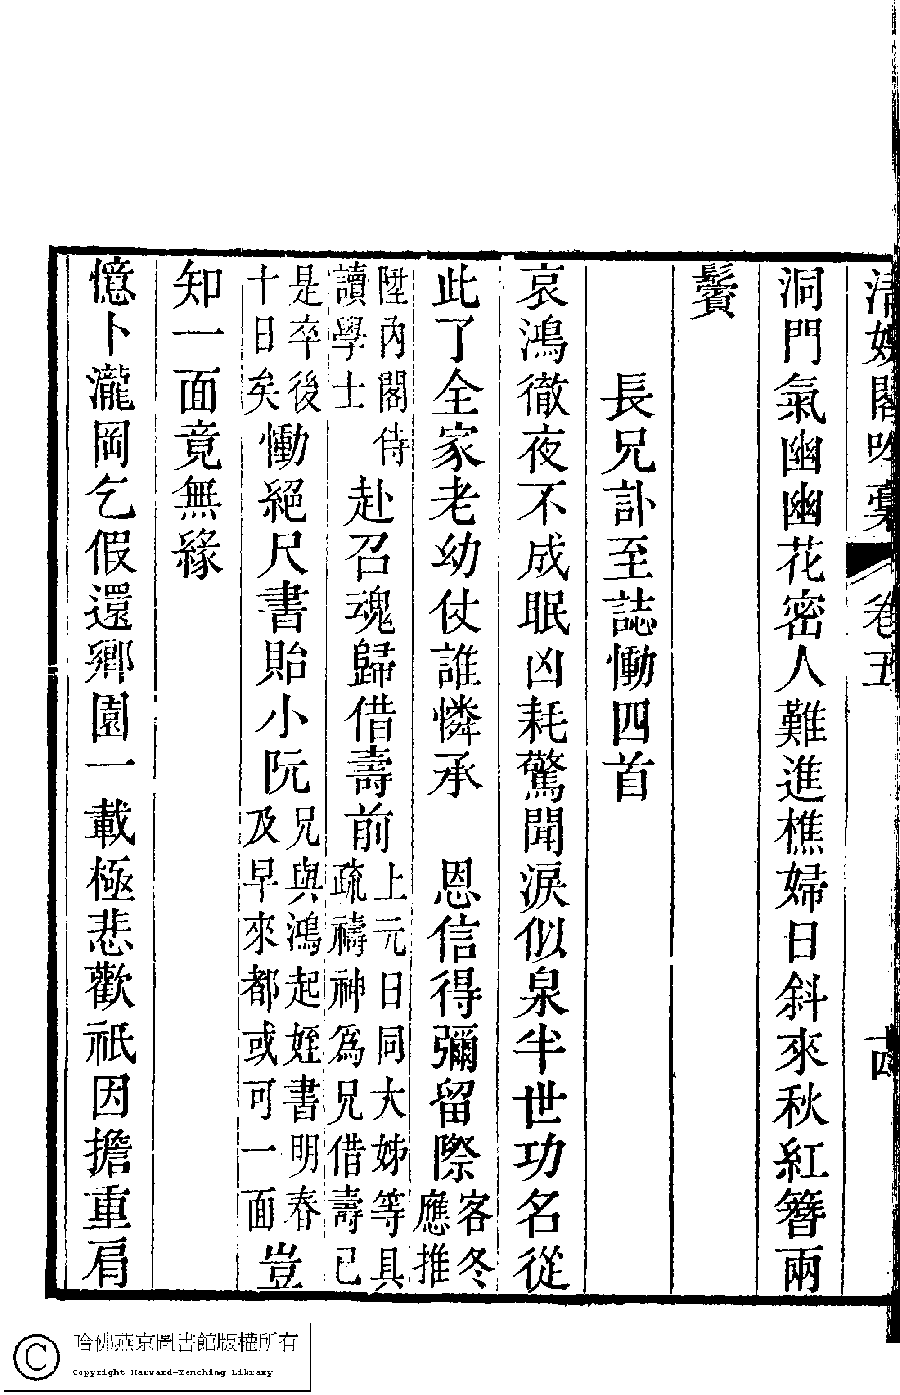 清娛閣吟藁 卷五 十四
洞門氣幽幽花密人難進樵婦日斜來秋紅簪兩
鬢
長兄訃至誌慟四首
哀鴻徹夜不成眠凶耗驚聞淚似泉半世功名從
此了全家老幼仗誰憐承 恩信得彌留際客冬應推
陞內閣侍讀學士赴召魂歸借壽前上元日同大姊等具疏禱神爲兄借壽已
是卒後十日矣慟絕尺書貽小阮兄與鴻起姪書明春及早來都或可一面豈
知一面竟無緣
憶卜瀧岡乞假還鄉園一載極悲歡祇因擔重肩
哈佛燕京圖書館版權所有
Copyright Harvard-Yenching Library